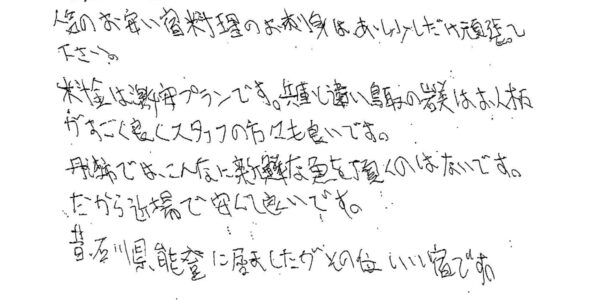 人気のお安い宿料理のお刺身は、あと少しだけ頑張って
下さい。
料金は激安プランです。兵庫と違い鳥取の岩美はお人柄
がすごく良くスタッフの方にも良いです。
丹後では、こんなに新鮮な魚を頂くのはないです。
だから近場で安くて良いです。
昔、石川県能登に居ましたがその位いい宿です。